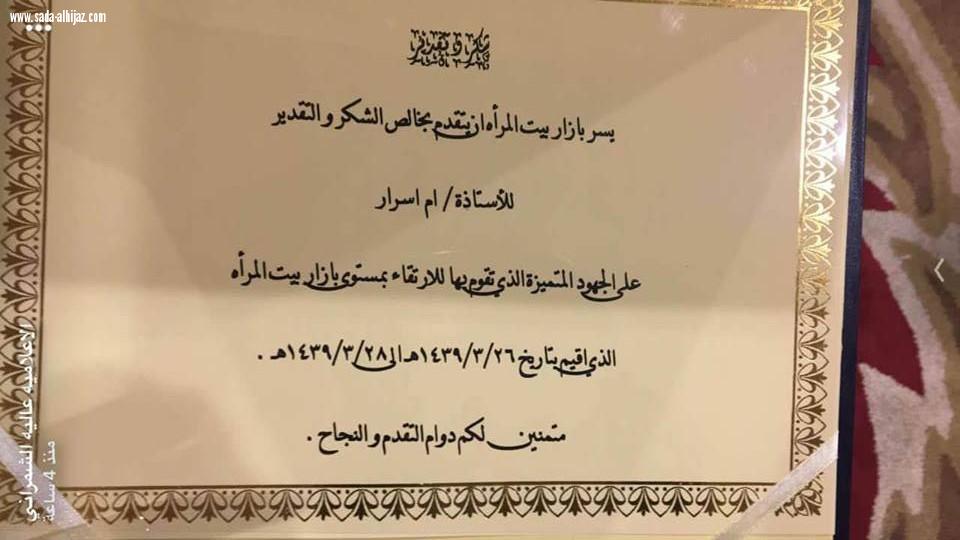 www.sada-alhijaz.com
شكر وتقدير
يسر بازار بيت المرأه ان يتقدم بخالص الشكر والتقدير
للأستاذة / ام اسرار
على الجهود المتميزة الذي تقوم بها للارتقاء بمستوى بازار بيت المرأه
الذي اقيم بتاريخ ١٤٣٩/٣/٢٦هـ الى ١٤٣٩/٣/٢٨هـ .
متمنين لكم دوام التقدم والنجاح .
الاعلاميه عاليه الشمراني
منذ 4 ساعة